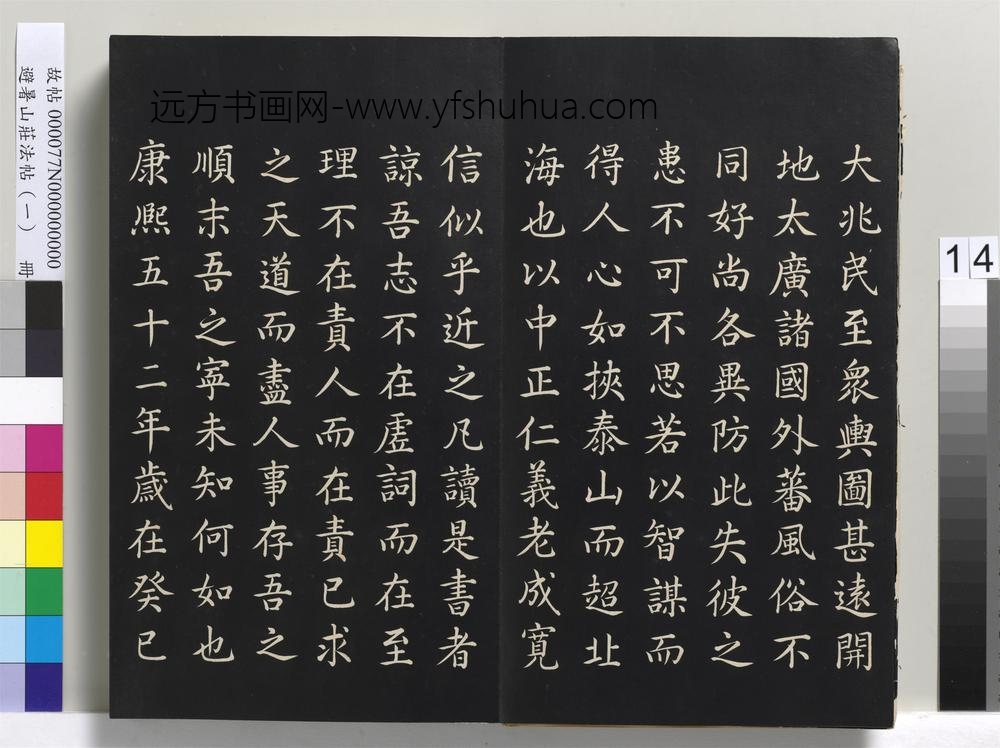 大兆民至衆輿圖甚遠開
地太廣諸國外蕃風俗不
同好尚各異防此失彼之
患不可不思若以智謀而
得人心如挾泰山而超北
海也以中正仁義老成寬
信似乎近之凡讀是書者
諒吾志不在虛詞而在至
理不在責人而在責已求
之天道而盡人事存吾之
順末吾之寧未知何如也
康熙五十二年歲在癸巳
远方书画网-www.yfshuhua.com
故帖000077N000000000
避暑山莊法帖(一) 冊
14